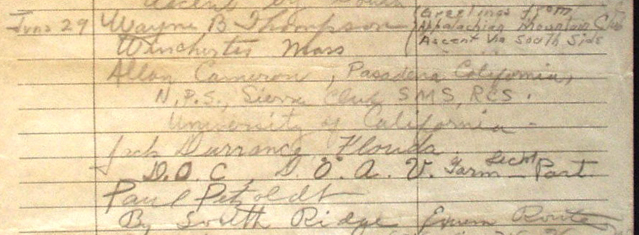 Ascent by South
June 29 Wayne B Thompson (Greetings from
Appalachian Mountain Club
Winchester Mass (Ascent Via South Side
Allan Cameron, Pasadena California,
N.P.S., Sierra Club SMS, RCS.
University of California -
Jack Durrance Florida.
D.O.C., D. Ö. A. V. Farm Part.
Paul Petzoldt
By South Ridge Exum Route